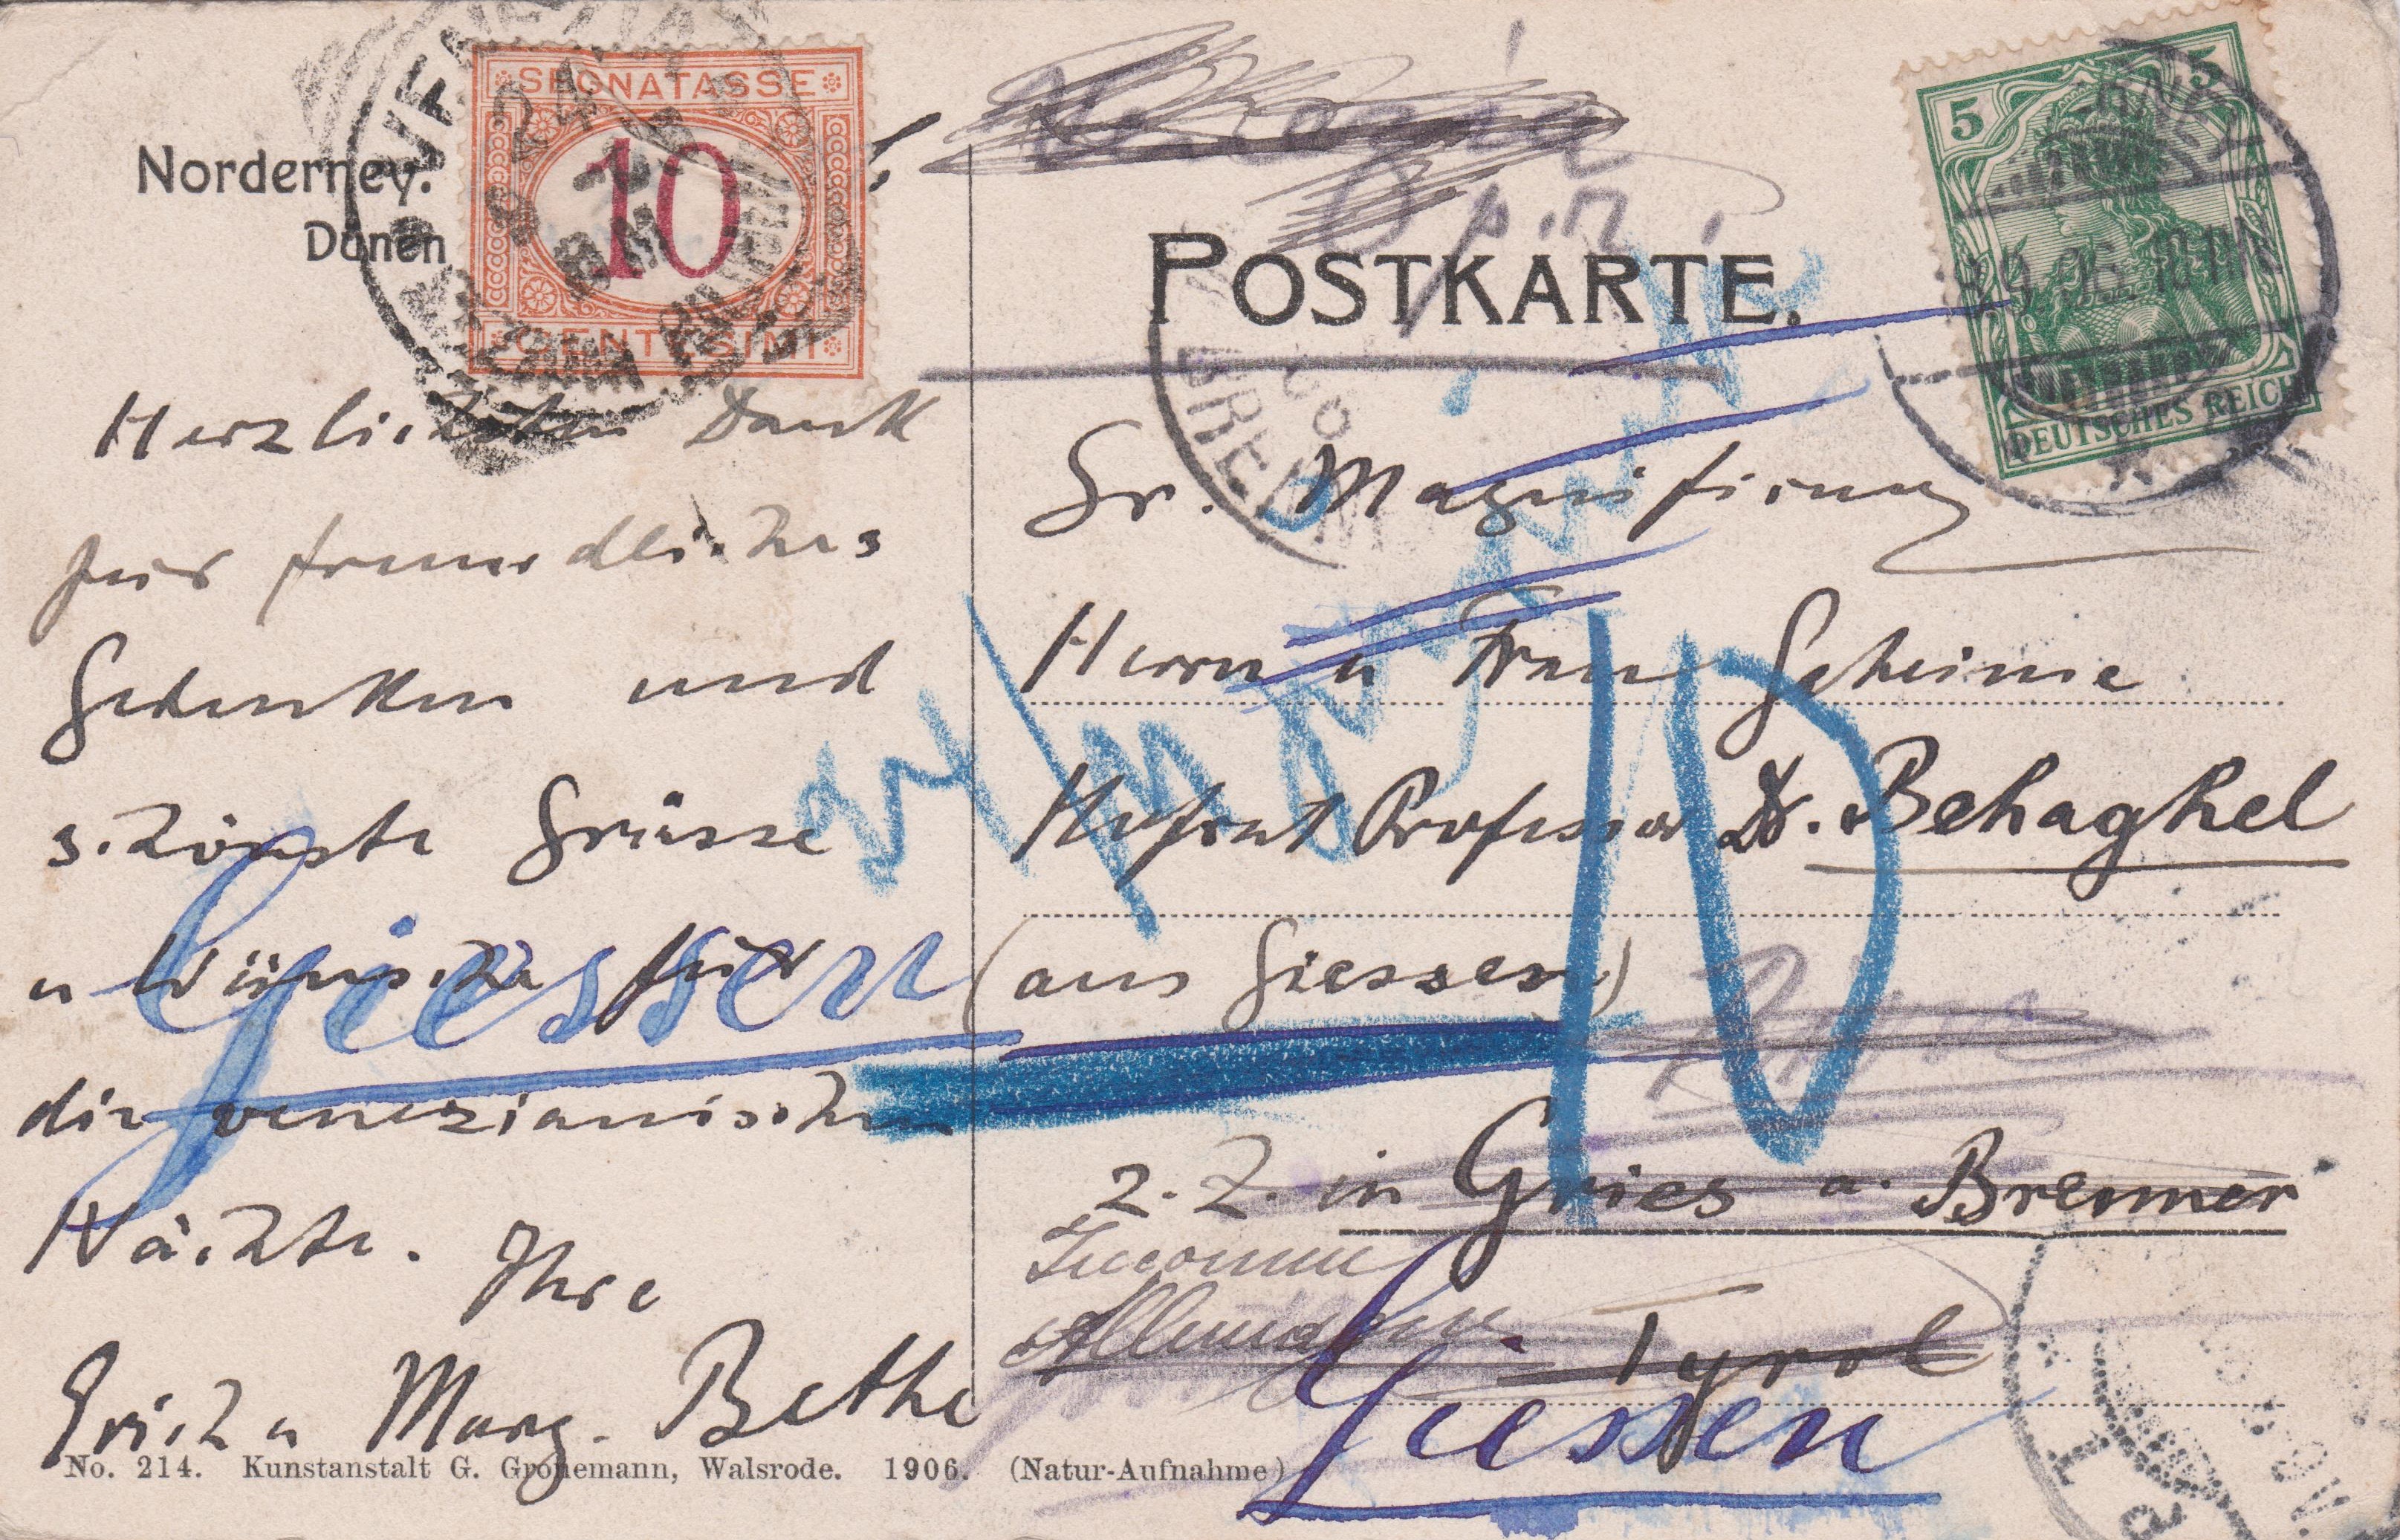 VENEZIA
SEGNATASSE
10
CENTESIMI
Norderney.
Dünen
POSTKARTE.
5 5
DEUTSCHES REICH
BRENN
Herzlichsten Dank
für freundliches
Gedenken und
schönste Grüsse
u Wünsche für
die venezianischen
Nächte. Ihre
Erich u Marg. Bethe
Giessen
Sr. Magnificenz
Herrn u Frau Geheime
Hofrat Professor Dr. Behaghel
(aus Giessen)
10
z. Z. in Gries a. Brenner
Inconnu
Allemagne
Tyrol
Giessen
No. 214. Kunstanstalt G. Gronemann, Walsrode. 1906. (Natur-Aufnahme)